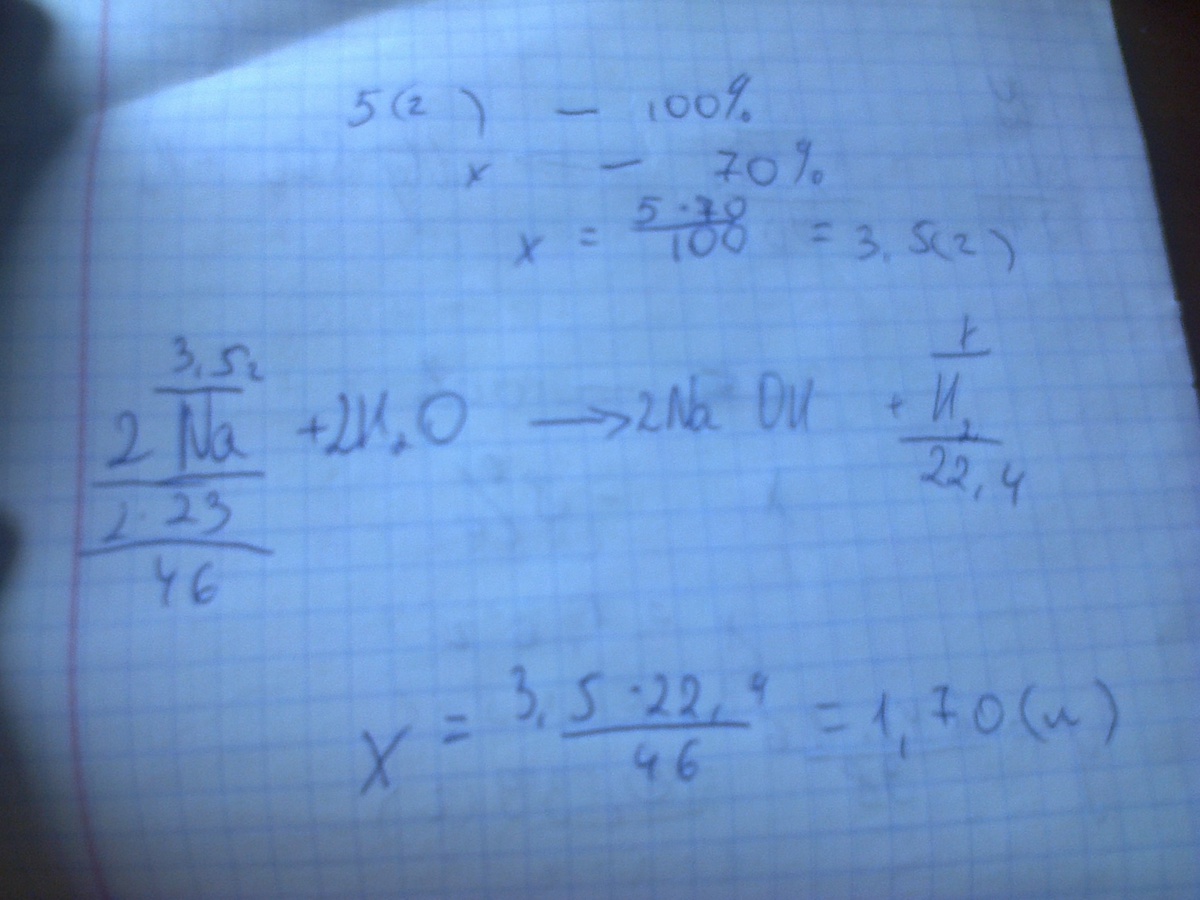 5(г) — 100%
x — 70%
x = 5·70/100 = 3,5(г)
3,5г
2Na + 2H₂O → 2NaOH + H₂
2·23
22,4
46
X = 3,5·22,4/46 = 1,70(л)